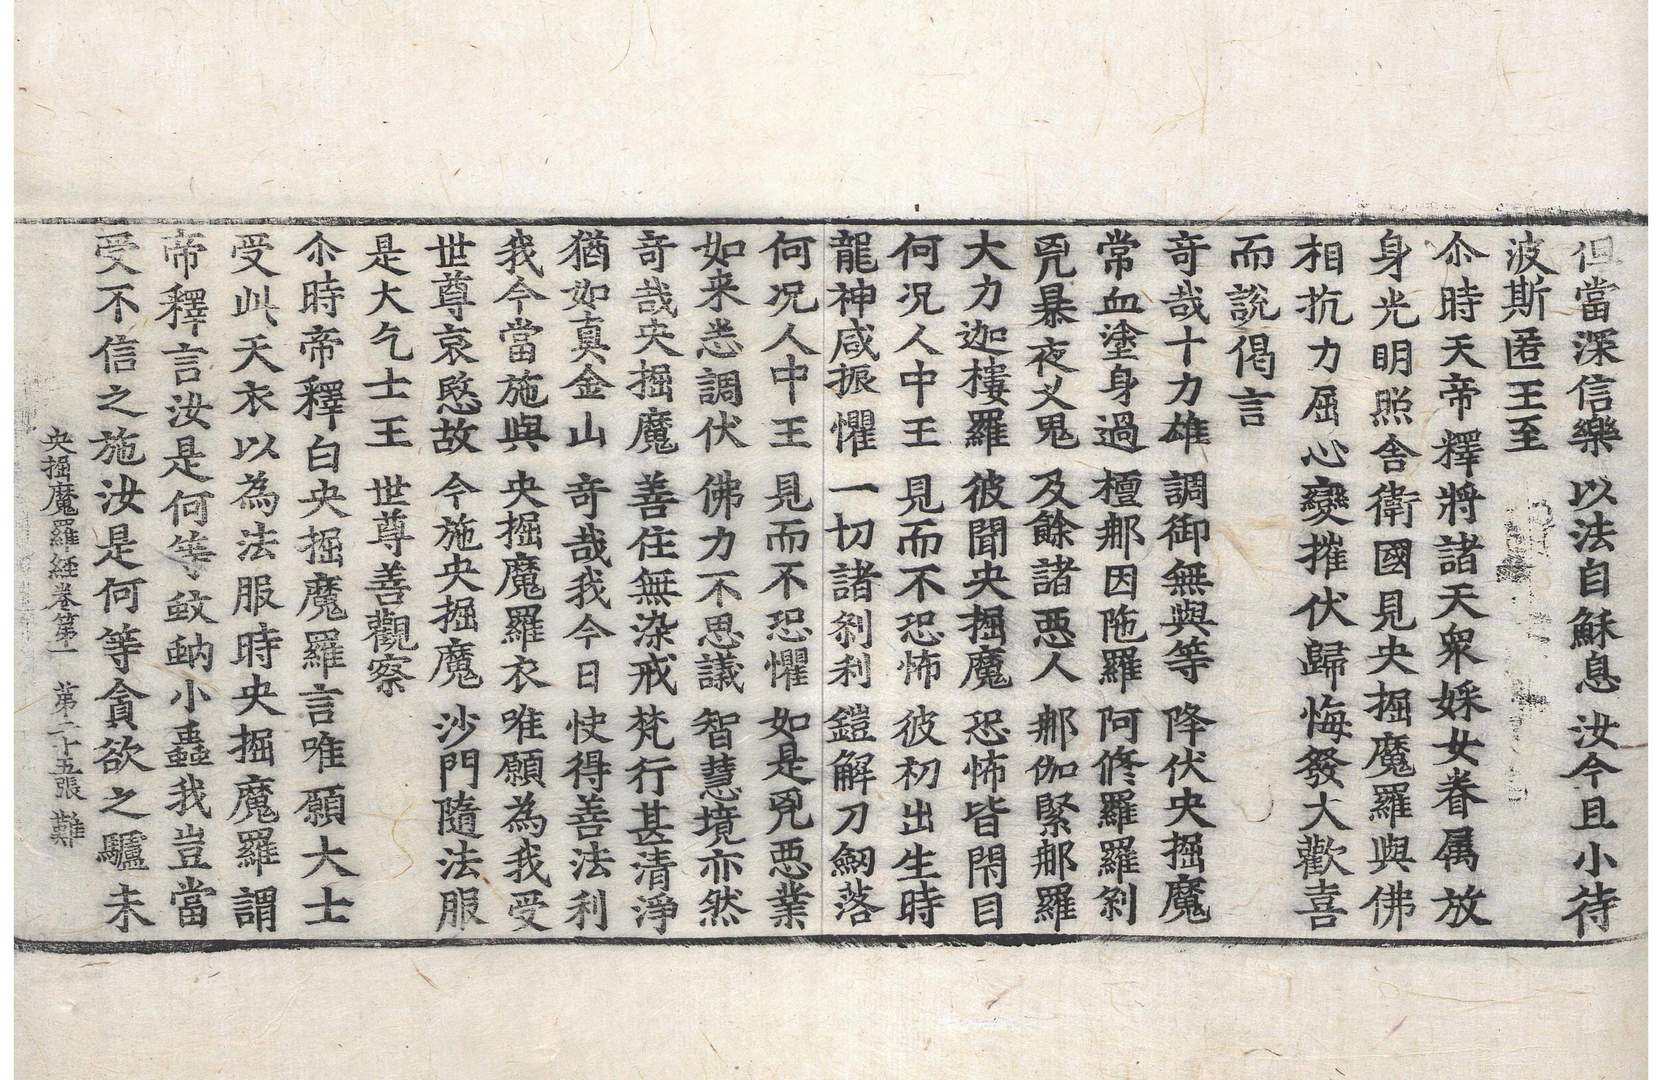 但當深信樂 以法自穌息 汝今且小待
波斯匿王至
尒時天帝釋將諸天衆婇女眷属放
身光明照舎衛國見央掘魔羅與佛
相抗力屈心變摧伏歸悔發大歡喜
而說偈言
奇哉十力雄 調御無與等 降伏央掘魔
常血塗身過 檀那因陁羅 阿修羅羅刹
兇暴夜叉鬼 及餘諸悪人 那伽緊那羅
大力迦樓羅 彼聞央掘魔 恐怖皆閇目
何况人中王 見而不恐怖 彼初出生時
龍神咸振懼 一切諸刹利 鎧解刀劒落
何况人中王 見而不恐懼 如是兇悪業
如来悉調伏 佛力不思議 智慧境亦然
奇哉央掘魔 善住無染戒 梵行甚清淨
猶如真金山 奇哉我今日 快得善法利
我今當施與 央掘魔羅衣 唯願為我受
世尊哀愍故 今施央掘魔 沙門隨法服
是大乞士王 世尊善觀察
尒時帝釋白央掘魔羅言唯願大士
受此天衣以為法服時央掘魔羅謂
帝釋言汝是何等蚊蚋小蟲我豈當
受不信之施汝是何等貪欲之驢未
央掘魔羅経卷第一 第二十五張 難